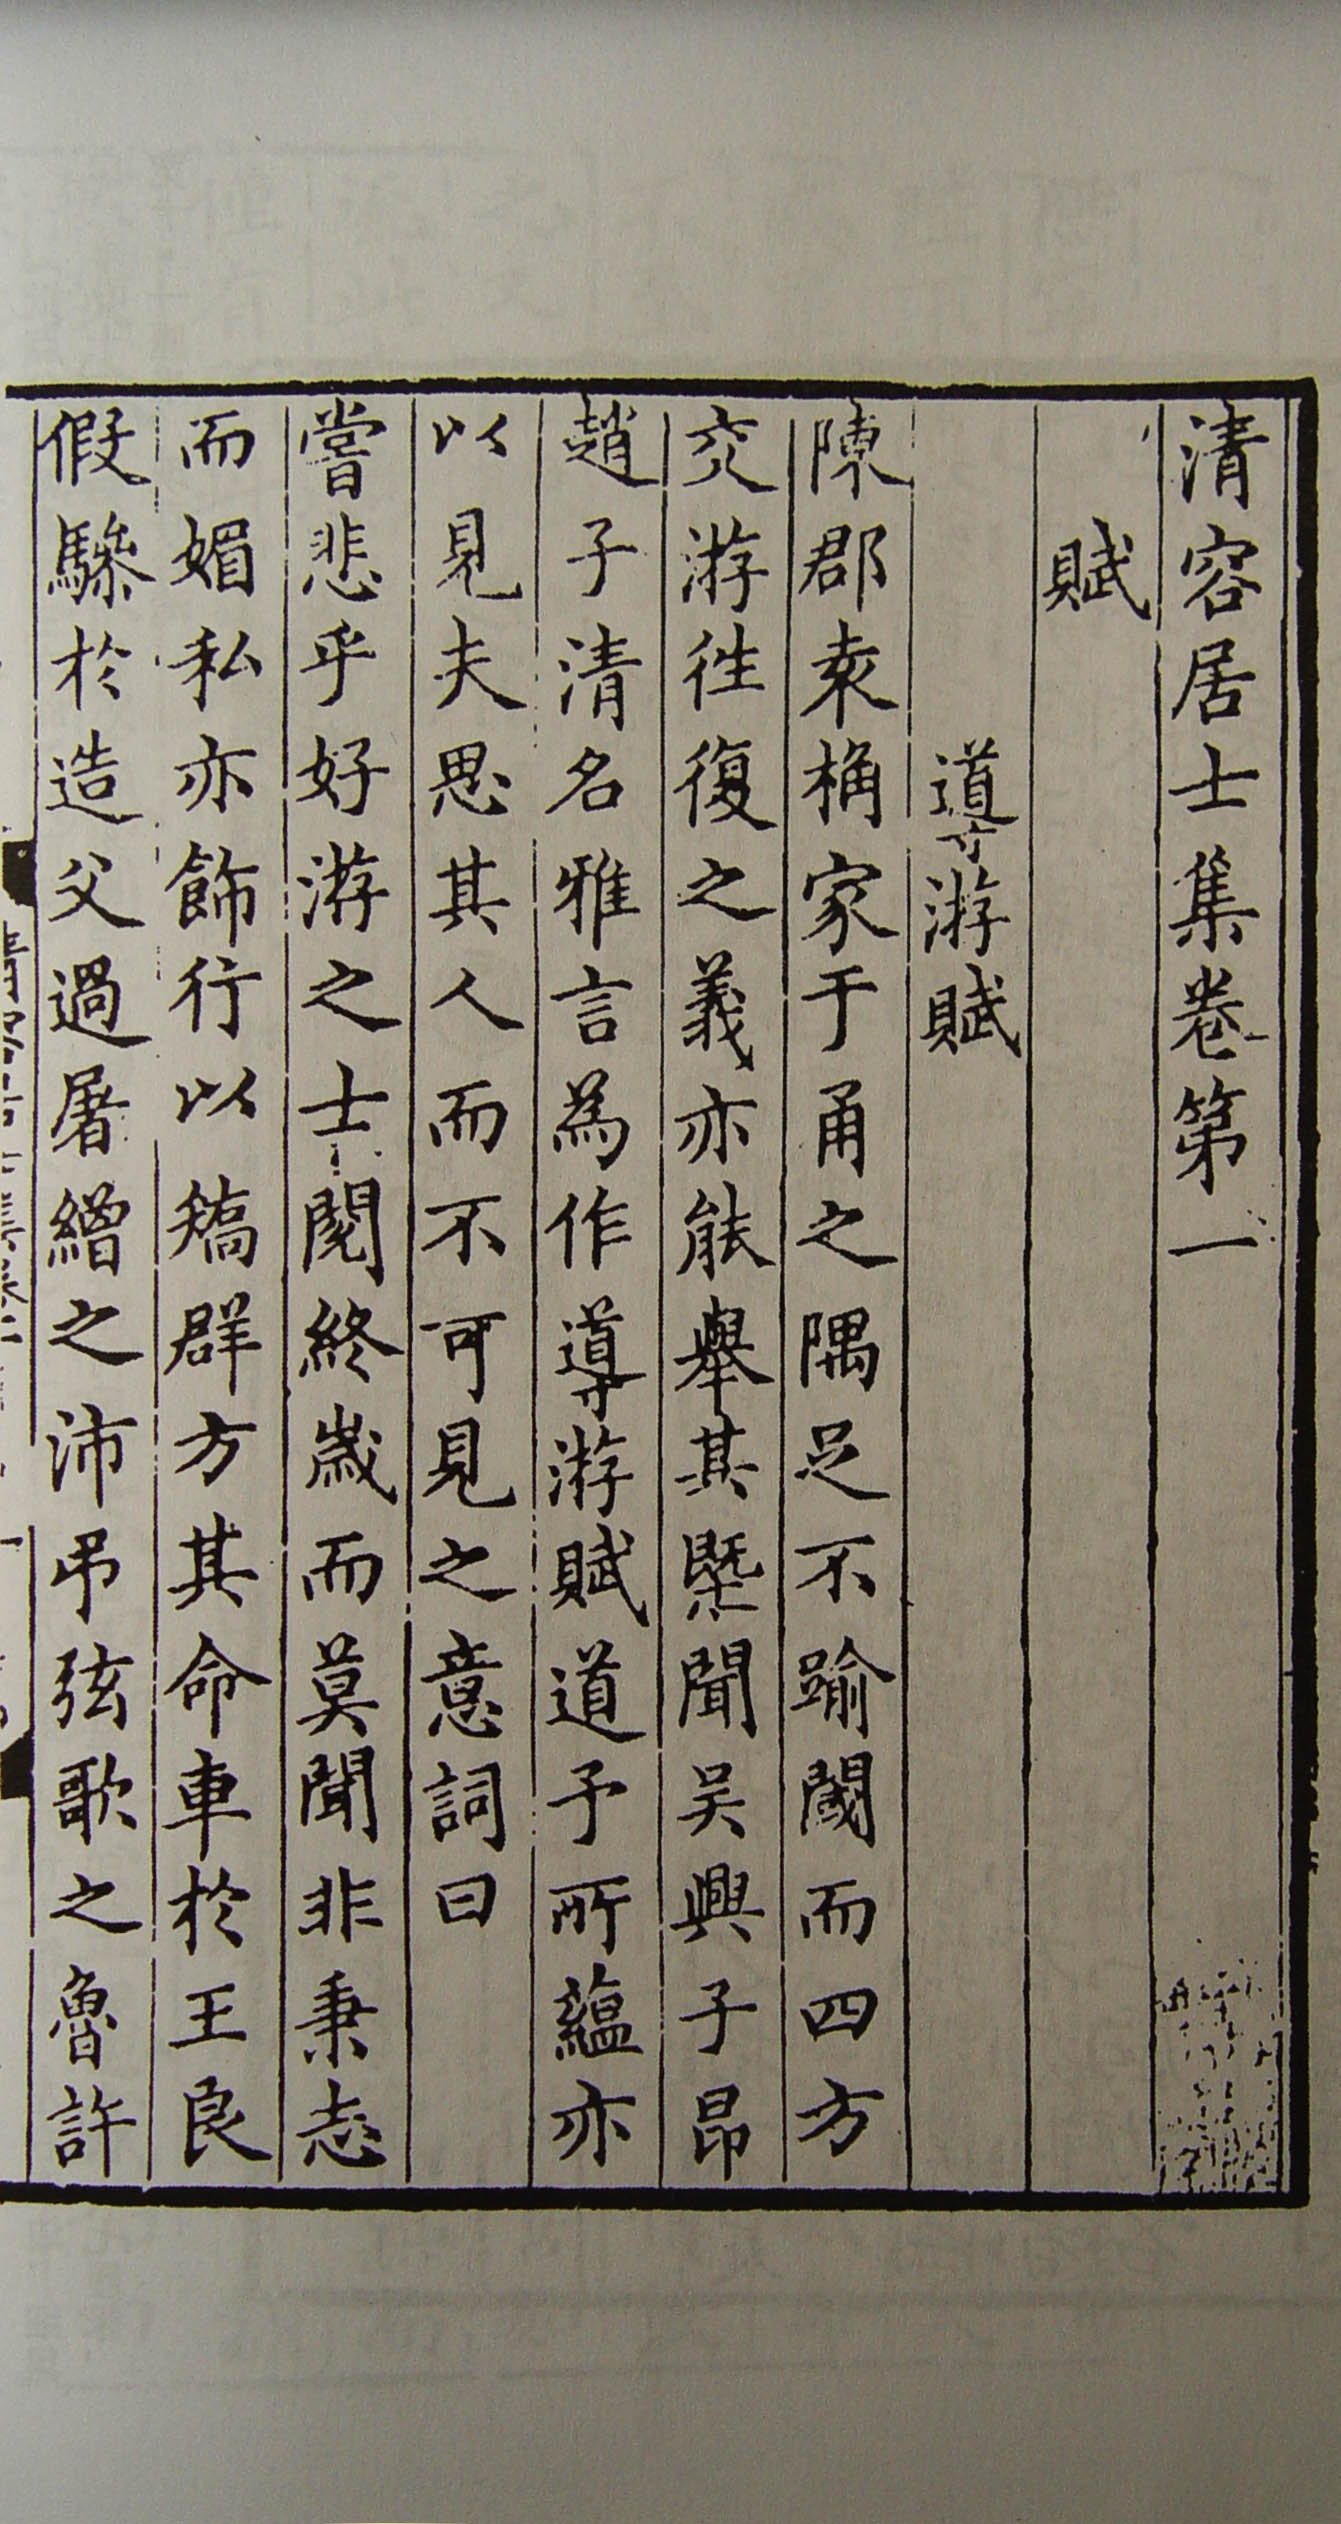 清容居士集卷第一
賦
導游賦
陳郡袁桷家于甬之隅足不踰閾而四方
交游往復之義亦能舉其槩聞吴興子昂
趙子清名雅言為作導游賦道予所蘊亦
以見夫思其人而不可見之意詞曰
嘗悲乎好游之士閱終歲而莫聞非秉志
而媚私亦飾行以矯群方其命車於王良
假驂於造父過屠繒之沛弔弦歌之魯許